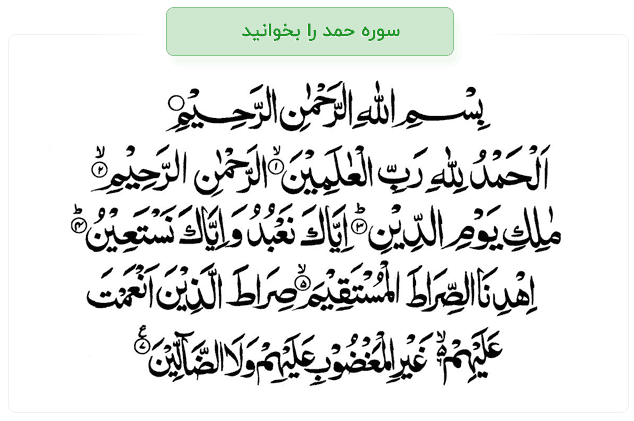 سوره حمد را بخوانید
بِسْمِ اللهِ الرَّحْمٰنِ الرَّحِيْمِ
اَلْحَمْدُ لِلّٰهِ رَبِّ الْعٰلَمِيْنَ ۙ﴿۱﴾ الرَّحْمٰنِ الرَّحِيْمِ ۙ﴿۲﴾
مٰلِكِ يَوْمِ الدِّيْنِ ؕ﴿۳﴾ اِيَّاكَ نَعْبُدُ وَاِيَّاكَ نَسْتَعِيْنُ ؕ﴿۴﴾
اِهْدِنَا الصِّرَاطَ الْمُسْتَقِيْمَ ۙ﴿۵﴾ صِرَاطَ الَّذِيْنَ اَنْعَمْتَ
عَلَيْهِمْ ۙ﴿۶﴾ غَيْرِ الْمَغْضُوْبِ عَلَيْهِمْ وَلَا الضَّآلِّيْنَ ﴿۷﴾ ع